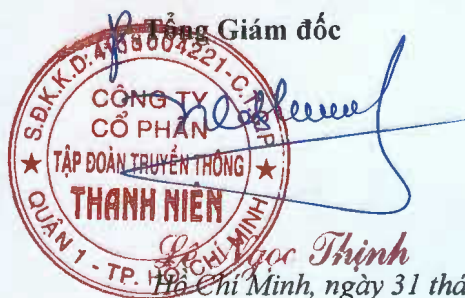 Tổng Giám đốc
S.Đ.K.K.D:4103004221-C.T.C.P
CÔNG TY
CỔ PHẦN
TẬP ĐOÀN TRUYỀN THÔNG
THANH NIÊN
QUẬN 1 - TP. HỒ CHÍ MINH
Lê Ngọc Thịnh
Hồ Chí Minh, ngày 31 thá